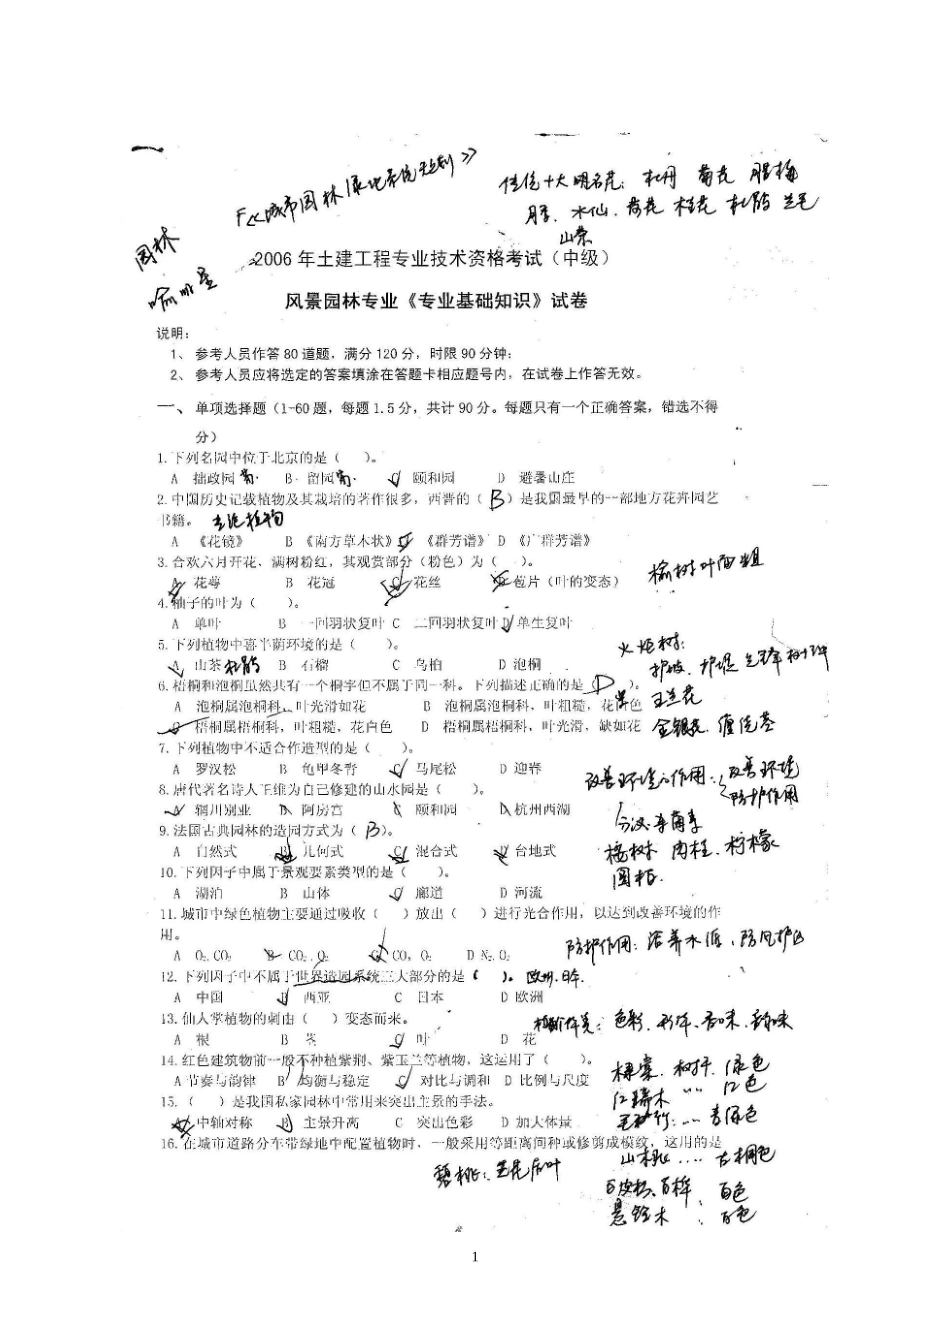 F《城市园林绿化系统规划》
传统十大名花:牡丹 菊花 腊梅
月季、水仙、荷花 桂花 杜鹃 兰花
山茶
园林
2006 年土建工程专业技术资格考试（中级）
风景园林专业《专业基础知识》试卷
说明:
1、 参考人员作答 80 道题，满分 120 分，时限 90 分钟:
2、 参考人员应将选定的答案填涂在答题卡相应题号内，在试卷上作答无效。
一、单项选择题（1-60 题，每题 1.5 分，共计 90 分。每题只有一个正确答案，错选不得
分）
1.下列名园中位于北京的是（ ）。
A 拙政园 B 留园 C 颐和园 D 避暑山庄
2.中国历史记载植物及其栽培的著作很多，西晋的（ B ）是我国最早的一部地方花卉园艺
书籍。
A 《花镜》 B 《南方草木状》 C 《群芳谱》 D 《广群芳谱》
3.合欢六月开花、满树粉红，其观赏部分（粉色）为（ ）。
A 花萼 B 花冠 C 花丝 D 苞片（叶的变态）
榆树叶面粗
4.柚子的叶为（ ）。
A 单叶 B 一回羽状复叶 C 二回羽状复叶 D 单生复叶
5.下列植物中喜半荫环境的是（ ）。
火炬树:
A 山茶 杜鹃 B 石榴 C 乌桕 D 泡桐
护坡、护堤
6.梧桐和泡桐虽然共有一个桐字但不属于同一科。下列描述正确的是（ D ）。
A 泡桐属泡桐科，叶光滑如花 B 泡桐属泡桐科，叶粗糙，花白色
玉兰花
C 梧桐属梧桐科，叶粗糙，花白色 D 梧桐属梧桐科，叶光滑，缺如花
金银花、
7.下列植物中不适合作造型的是（ ）。
A 罗汉松 B 龟甲冬青 C 马尾松 D 迎春
改善环境的作用: 改善环境
防护作用
8.唐代著名诗人王维为自己修建的山水园是（ ）。
A 辋川别业 B 阿房宫 C 颐和园 D 杭州西湖
9.法国古典园林的造园方式为（ B ）。
A 自然式 B 几何式 C 混合式 D 台地式
橡树、肉桂、柠檬
圆柏.
10.下列因子中属于景观要素类型的是（ ）。
A 湖泊 B 山体 C 廊道 D 河流
11.城市中绿色植物主要通过吸收（ ）放出（ ）进行光合作用，以达到改善环境的作
用。
防护作用: 涵养水源、防风护
A O₂,CO₂ B CO₂,O₂ C CO,O₂ D N₂,O₂
12.下列因子中不属于世界造园系统三大部分的是（ ）。欧州.
A 中国 B 西亚 C 日本 D 欧洲
13.仙人掌植物的刺由（ ）变态而来。
色彩、形体、香味、韵味
A 根 B 茎 C 叶 D 花
14.红色建筑物前一般不种植紫荆、紫玉兰等植物，这运用了（ ）。
A 节奏与韵律 B 均衡与稳定 C 对比与调和 D 比例与尺度
棣棠、树干、绿色
红瑞木 〃 〃 红色
15.（ ）是我国私家园林中常用来突出主景的手法。
A 中轴对称 B 主景升高 C 突出色彩 D 加大体量
16.在城市道路分车带绿地中配置植物时，一般采用等距离间种或修剪成模纹，这用的是
山桃 .... 古桐色
碧桃: 先花后叶
白皮松、白桦、白色
悬铃木 、白色
1